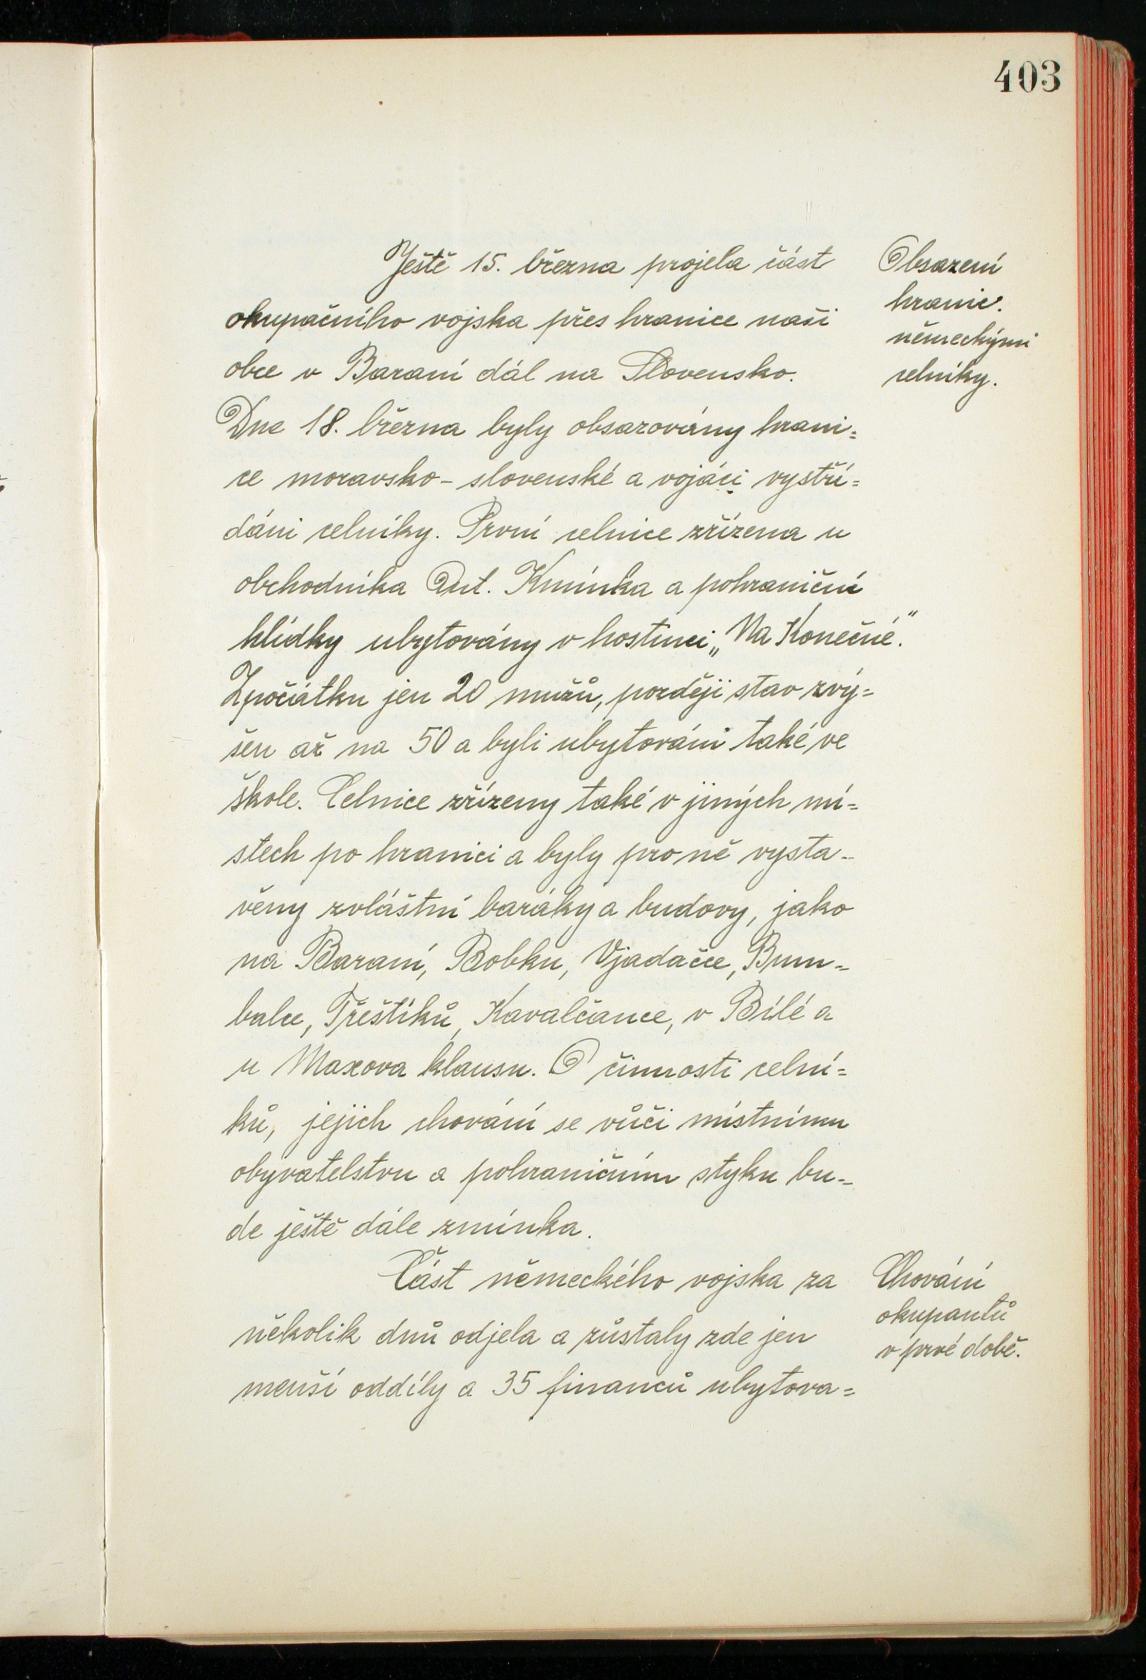 403
Ještě 15. března projela část
okupačního vojska přes hranice naší
obce v Baraní dál na Slovensko.
Dne 18. března byly obsazovány hrani=
ce moravsko-slovenské a vojáci vystří=
dáni celníky. První celnice zřízena u
obchodníka Ant. Kmínka a pohraniční
hlídky ubytovány v hostinci „Na Konečné".
Zpočátku jen 20 mužů, později stav zvý=
šen až na 50 a byli ubytováni také ve
škole. Celnice zřízeny také v jiných mí=
stech po hranici a byly pro ně vysta-
věny zvláštní baráky a budovy, jako
na Baraní, Bobku, Vjadačce, Bum-
balce, Třeštíku, Kavalčance, v Bílé a
u Maxova klausu. O činnosti celní=
ků, jejich chování se vůči místnímu
obyvatelstvu a pohraničním styku bu-
de ještě dále zmínka.
Část německého vojska za
několik dnů odjela a zůstaly zde jen
menší oddíly a 35 financů ubytova=
Obsazení
hranic.
německými
celníky.
Chování
okupantů
v prvé době.